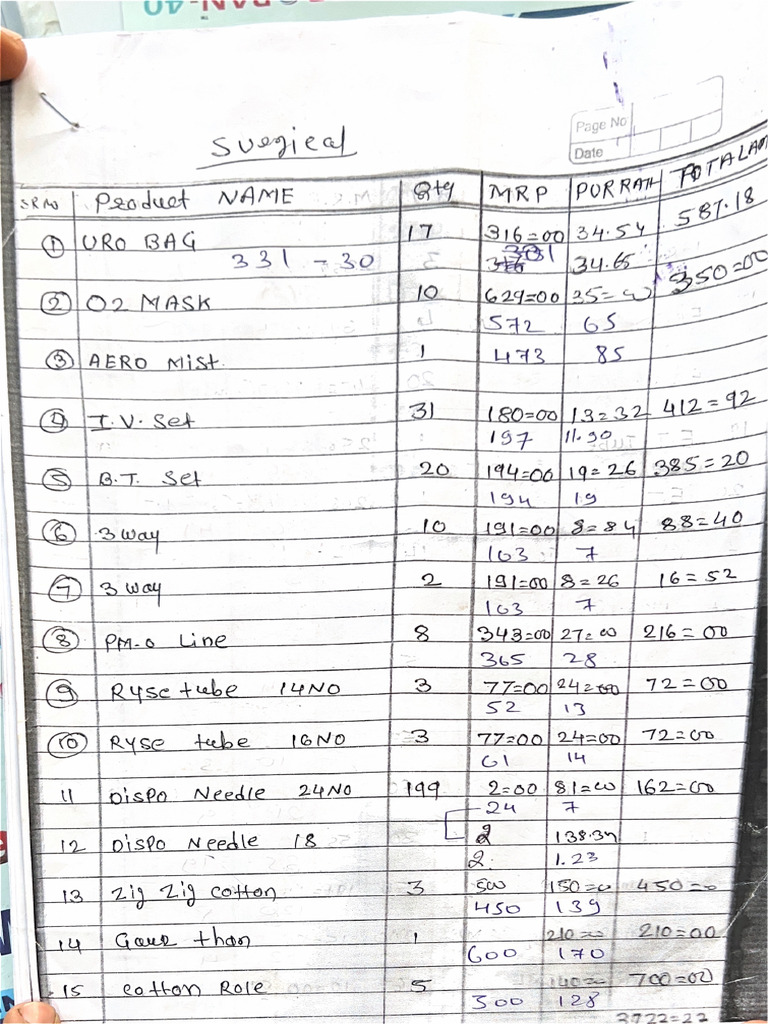 Surgical
Page No
Date
SR No Product NAME Qty MRP PURRATE TOTAL AM
① URO BAG 17 316=00 34.54 587.18
331-30 331 34.65
② O2 MASK 10 629=00 35=00 350=00
572 65
③ AERO Mist. 1 473 85
④ I.V. Set 31 180=00 13=32 412=92
197 11.90
⑤ B.T. Set 20 194=00 19=26 385=20
194 19
⑥ 3 way 10 191=00 8=84 88=40
163 7
⑦ 3 way 2 191=00 8=26 16=52
163 7
⑧ PM-O Line 8 343=00 27=00 216=00
365 28
⑨ Ryse tube 14NO 3 77=00 24=00 72=00
52 13
⑩ Ryse tube 16NO 3 77=00 24=00 72=00
61 14
11 Dispo Needle 24NO 199 2=00 81=00 162=00
24 7
12 Dispo Needle 18 2 138.34
2. 1.23
13 Zig Zig cotton 3 500 150=00 450=00
450 139
14 Gauz than 1 210=00 210=00
600 170
15 Cotton Role 5 140=00 700=00
300 128
3722=22